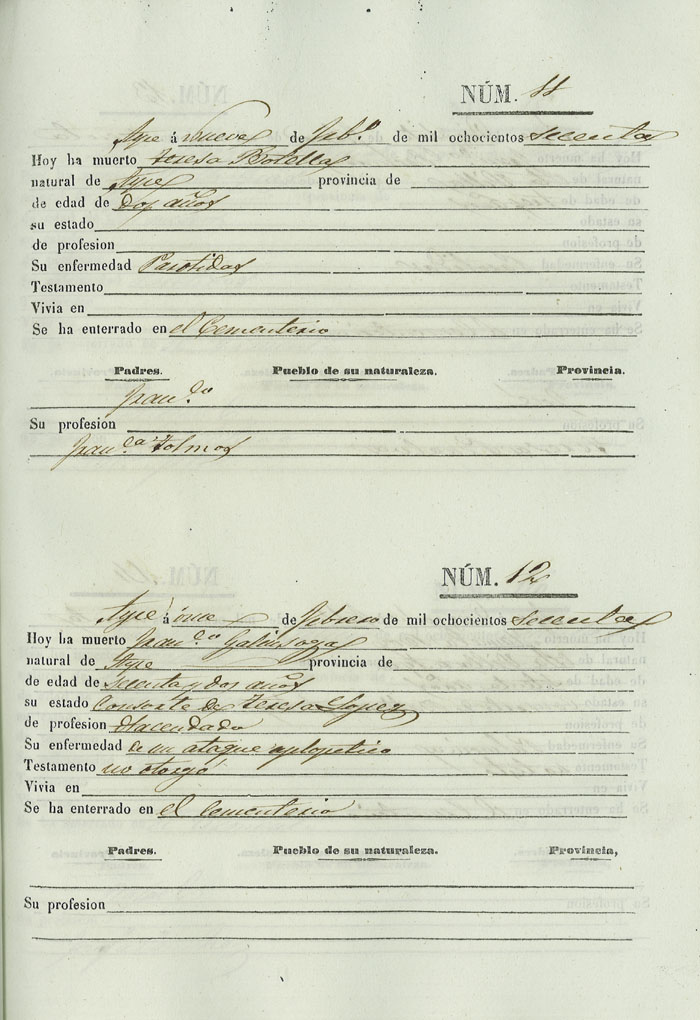 NÚM. 11
Aspe á nueve de Febº de mil ochocientos sesenta
Hoy ha muerto Teresa Botella
natural de Aspe provincia de
de edad de dos años
su estado
de profesion
Su enfermedad Parotidas
Testamento
Vivia en
Se ha enterrado en el Cementerio
Padres. Pueblo de su naturaleza. Provincia.
Franco
Su profesion
Franca
NÚM. 12
Aspe á once de Febrero de mil ochocientos sesenta
Hoy ha muerto Franco Galinsoga
natural de Aspe provincia de
de edad de sesenta y dos años
su estado Consorte de Teresa Lopez
de profesion Hacendado
Su enfermedad de un ataque aplopetico
Testamento no otorgó
Vivia en
Se ha enterrado en el Cementerio
Padres. Pueblo de su naturaleza. Provincia,
Su profesion